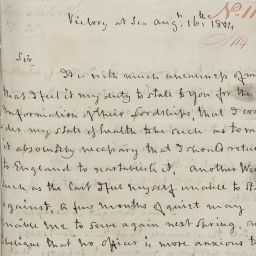 No 11
Victory at Sea augst 16th 1804
Sir
It is with much uneasiness of m
that I feel it my duty to state to you for the
Information of their Lordships, that I con
der my state of health to be such as to m
it absolutely necessary that I should retu
to England to reestablish it, Another Win
such as the last I feel myself unable to St
against, A few months of quiet may
nable me to serve again next Spring, an
believe that no officer is more anxious t